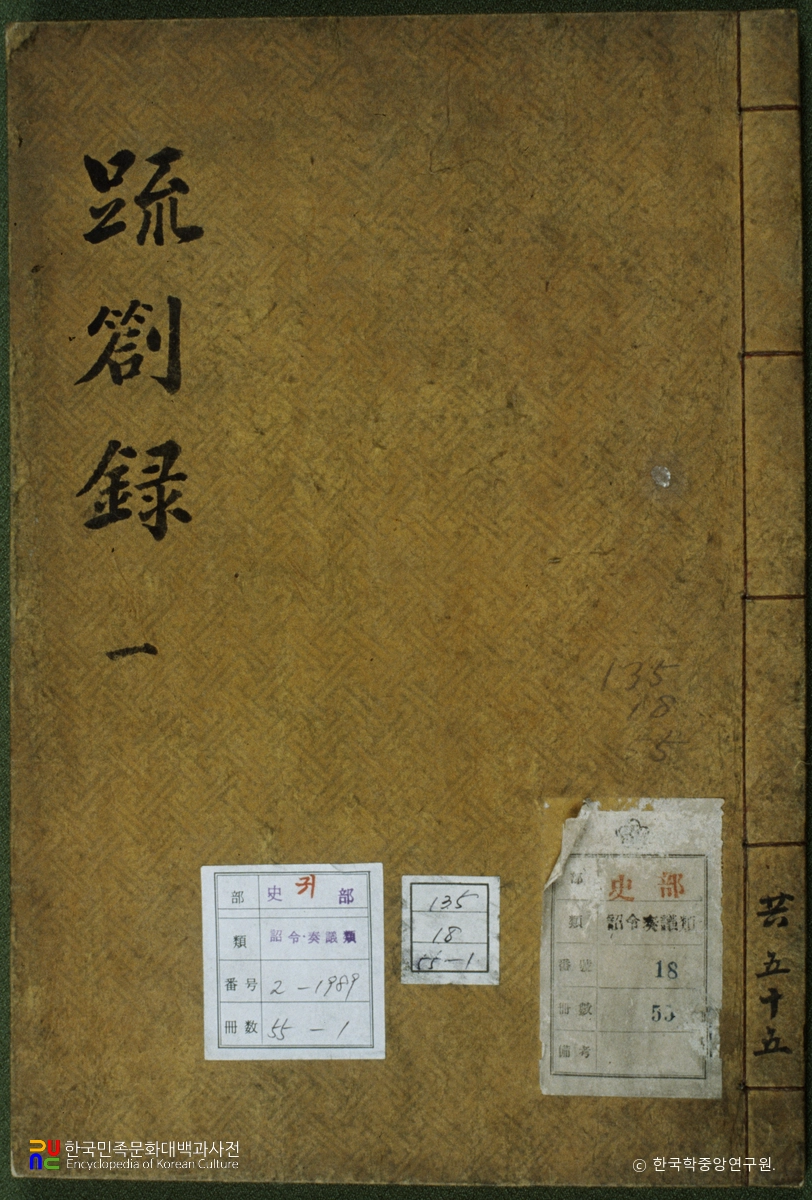 疏劄錄
一
135
18
55
共五十五
部 史 귀 部
類 詔令·奏議類
番号 2-1989
冊数 55-1
135
18
55-1
部 史部
類 詔令奏議類
番號 18
冊數 55
備考
한국민족문화대백과사전
Encyclopedia of Korean Culture
© 한국학중앙연구원.